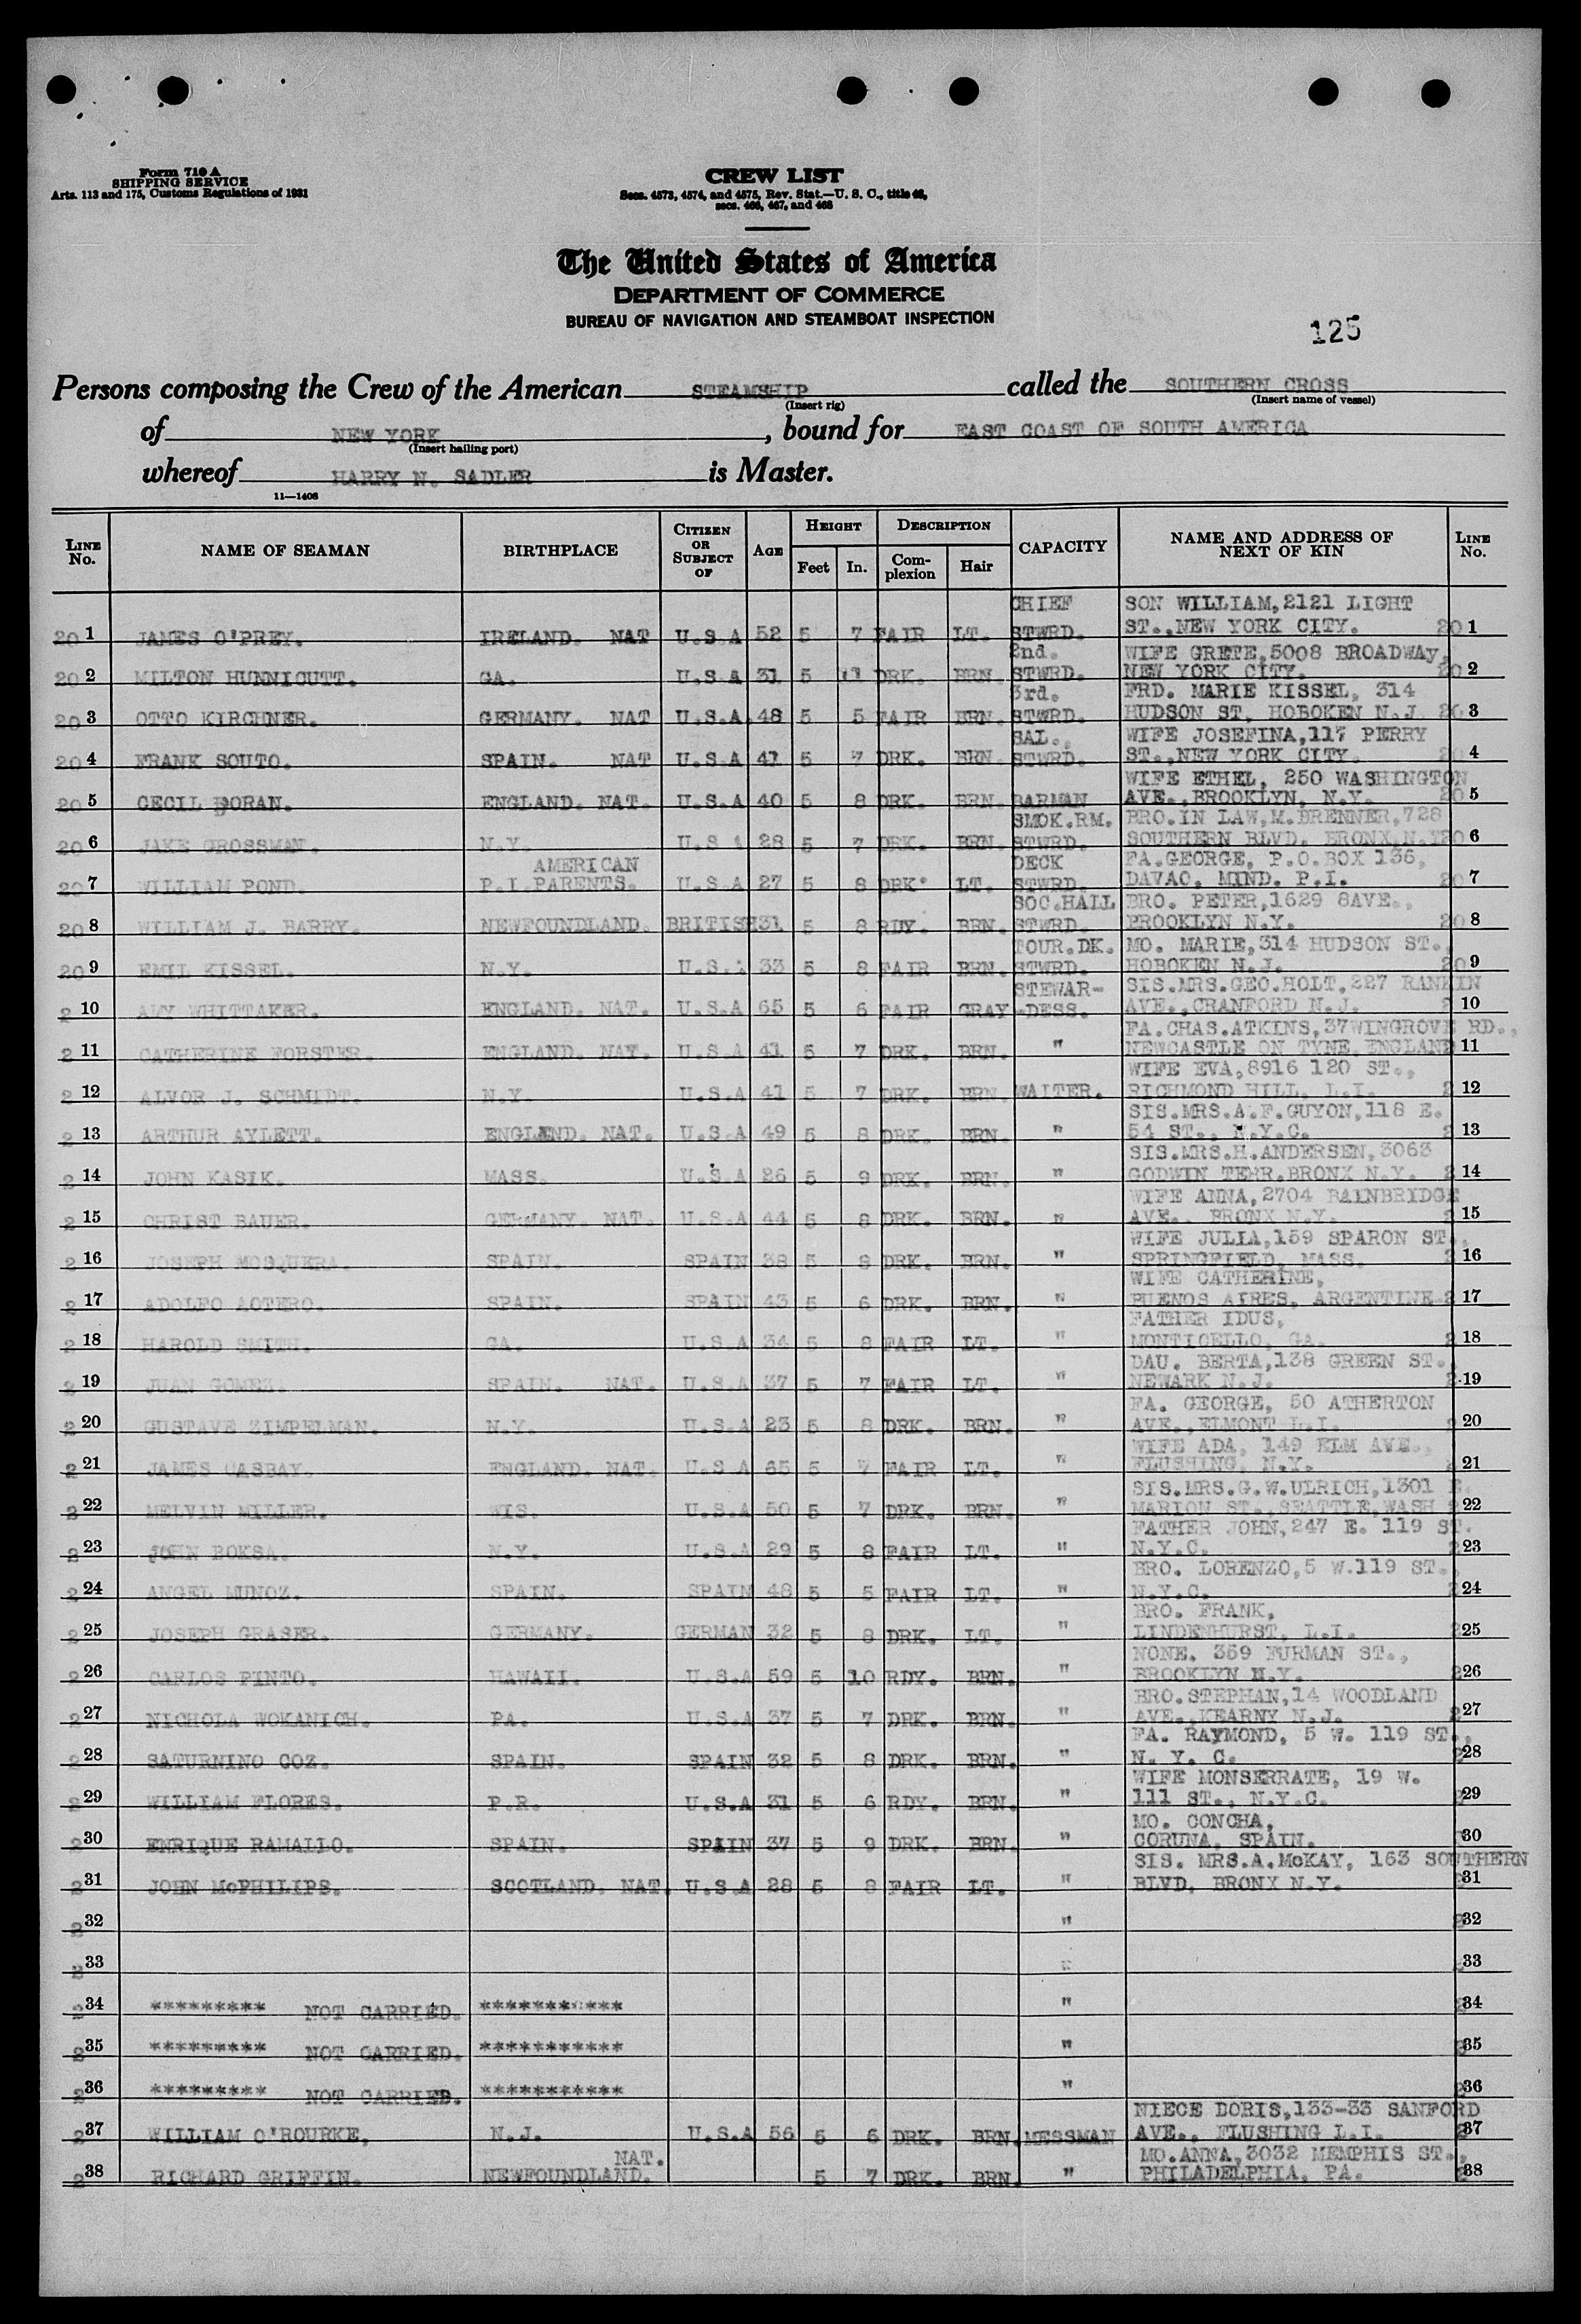 Form 710 A
SHIPPING SERVICE
Arts. 113 and 175, Customs Regulations of 1931
CREW LIST
Secs. 4573, 4574, and 4575, Rev. Stat.—U. S. C., title 46,
secs. 466, 467, and 468
The United States of America
DEPARTMENT OF COMMERCE
BUREAU OF NAVIGATION AND STEAMBOAT INSPECTION
125
Persons composing the Crew of the American STEAMSHIP called the SOUTHERN CROSS
(Insert rig) (Insert name of vessel)
of NEW YORK, bound for EAST COAST OF SOUTH AMERICA
(Insert hailing port)
whereof HARRY N. SADLER is Master.
11—1408
LINE No. NAME OF SEAMAN BIRTHPLACE CITIZEN OR SUBJECT OF AGE HEIGHT Feet In. DESCRIPTION Complexion Hair CAPACITY NAME AND ADDRESS OF NEXT OF KIN LINE No.
CHIEF SON WILLIAM,2121 LIGHT
20 1 JAMES O'PREY. IRELAND. NAT U.S.A 52 5 7 FAIR LT. STWRD. ST.,NEW YORK CITY. 20 1
2nd. WIFE GRETE,5008 BROADWAY,
20 2 MILTON HUNNICUTT. GA. U.S.A 31 5 11 DRK. BRN. STWRD. NEW YORK CITY. 20 2
3rd. FRD. MARIE KISSEL, 314
20 3 OTTO KIRCHNER. GERMANY. NAT U.S.A. 48 5 5 FAIR BRN. STWRD. HUDSON ST. HOBOKEN N.J. 20 3
SAL., WIFE JOSEFINA,117 PERRY
20 4 FRANK SOUTO. SPAIN. NAT U.S.A 41 5 7 DRK. BRN. STWRD. ST.,NEW YORK CITY. 20 4
WIFE ETHEL, 250 WASHINGTON
20 5 CECIL DORAN. ENGLAND. NAT. U.S.A 40 5 8 DRK. BRN. BARMAN AVE.,BROOKLYN, N.Y. 20 5
SMOK.RM. BRO.IN LAW,M.BRENNER,728
20 6 JAKE GROSSMAN. N.Y. U.S.A 28 5 7 DRK. BRN. STWRD. SOUTHERN BLVD. BRONX,N.Y 20 6
AMERICAN DECK FA.GEORGE, P.O.BOX 136,
20 7 WILLIAM POND. P.I.PARENTS. U.S.A 27 5 8 DRK. LT. STWRD. DAVAO. MIND. P.I. 20 7
SOC.HALL BRO. PETER,1629 8AVE.,
20 8 WILLIAM J. BARRY. NEWFOUNDLAND. BRITISH 31 5 8 RDY. BRN. STWRD. BROOKLYN N.Y. 20 8
TOUR.DK. MO. MARIE,314 HUDSON ST.,
20 9 EMIL KISSEL. N.Y. U.S.A 33 5 8 FAIR BRN. STWRD. HOBOKEN N.J. 20 9
STEWAR- SIS.MRS.GEO.HOLT,227 RANKIN
2 10 AMY WHITTAKER. ENGLAND. NAT. U.S.A 65 5 6 FAIR GRAY -DESS. AVE.,CRANFORD N.J. 2 10
FA.CHAS.ATKINS,37WINGROVE RD.,
2 11 CATHERINE FORSTER. ENGLAND. NAT. U.S.A 41 5 7 DRK. BRN. " NEWCASTLE ON TYNE,ENGLAND 2 11
WIFE EVA,8916 120 ST.,
2 12 ALVOR J. SCHMIDT. N.Y. U.S.A 41 5 7 DRK. BRN. WAITER. RICHMOND HILL, L.I. 2 12
SIS.MRS.A.F.GUYON,118 E.
2 13 ARTHUR AYLETT. ENGLAND. NAT. U.S.A 49 5 8 DRK. BRN. " 54 ST., N.Y.C. 2 13
SIS.MRS.H.ANDERSEN,3063
2 14 JOHN KASIK. MASS. U.S.A 26 5 9 DRK. BRN. " GODWIN TERR.BRONX N.Y. 2 14
WIFE ANNA,2704 BAINBRIDGE
2 15 CHRIST BAUER. GERMANY. NAT. U.S.A 44 5 8 DRK. BRN. " AVE., BRONX N.Y. 2 15
WIFE JULIA,159 SPARON ST.,
2 16 JOSEPH MOSQUERA. SPAIN. SPAIN 38 5 8 DRK. BRN. " SPRINGFIELD, MASS. 2 16
WIFE CATHERINE,
2 17 ADOLFO AOTERO. SPAIN. SPAIN 43 5 6 DRK. BRN. " BUENOS AIRES, ARGENTINE. 2 17
FATHER IDUS,
2 18 HAROLD SMITH. GA. U.S.A 34 5 8 FAIR LT. " MONTICELLO, GA. 2 18
DAU. BERTA,138 GREEN ST.,
2 19 JUAN GOMEZ. SPAIN. NAT. U.S.A 37 5 7 FAIR LT. " NEWARK N.J. 2 19
FA. GEORGE, 50 ATHERTON
2 20 GUSTAVE ZIMPELMAN. N.Y. U.S.A 23 5 8 DRK. BRN. " AVE.,ELMONT L.I. 2 20
WIFE ADA, 149 ELM AVE.,
2 21 JAMES CASBAY. ENGLAND. NAT. U.S.A 65 5 7 FAIR LT. " FLUSHING, N.Y. 21
SIS.MRS.G.W.ULRICH,1301 E.
2 22 MELVIN MILLER. WIS. U.S.A 50 5 7 DRK. BRN. " MARION ST.,SEATTLE,WASH 2 22
FATHER JOHN,247 E. 119 ST.
2 23 JOHN BOKSA. N.Y. U.S.A 29 5 8 FAIR LT. " N.Y.C. 2 23
BRO. LORENZO,5 W.119 ST.,
2 24 ANGEL MUNOZ. SPAIN. SPAIN 48 5 5 FAIR LT. " N.Y.C. 2 24
BRO. FRANK,
2 25 JOSEPH GRASER. GERMANY. GERMAN 32 5 8 DRK. LT. " LINDENHURST, L.I. 2 25
NONE. 359 FURMAN ST.,
2 26 CARLOS PINTO. HAWAII. U.S.A 59 5 10 RDY. BRN. " BROOKLYN N.Y. 2 26
BRO.STEPHAN,14 WOODLAND
2 27 NICHOLA WOKANICH. PA. U.S.A 37 5 7 DRK. BRN. " AVE.,KEARNY N.J. 2 27
FA. RAYMOND, 5 W. 119 ST.,
2 28 SATURNINO COZ. SPAIN. SPAIN 32 5 8 DRK. BRN. " N. Y. C. 2 28
WIFE MONSERRATE, 19 W.
2 29 WILLIAM FLORES. P.R. U.S.A 31 5 6 RDY. BRN. " 111 ST., N.Y.C. 2 29
MO. CONCHA,
2 30 ENRIQUE RAMALLO. SPAIN. SPAIN 37 5 9 DRK. BRN. " CORUNA, SPAIN. 2 30
SIS. MRS.A.McKAY, 163 SOUTHERN
2 31 JOHN McPHILIPS. SCOTLAND. NAT. U.S.A 28 5 8 FAIR LT. " BLVD. BRONX N.Y. 2 31
2 32 " 2 32
2 33 " 2 33
2 34 ********* NOT CARRIED. *********** " 2 34
2 35 ********* NOT CARRIED. *********** " 2 35
2 36 ********* NOT CARRIED. *********** " 2 36
NIECE DORIS,133-33 SANFORD
2 37 WILLIAM O'ROURKE, N.J. U.S.A 56 5 6 DRK. BRN. MESSMAN AVE., FLUSHING L.I. 2 37
NAT. MO.ANNA,3032 MEMPHIS ST.,
2 38 RICHARD GRIFFIN. NEWFOUNDLAND. 5 7 DRK. BRN. " PHILADELPHIA, PA. 2 38